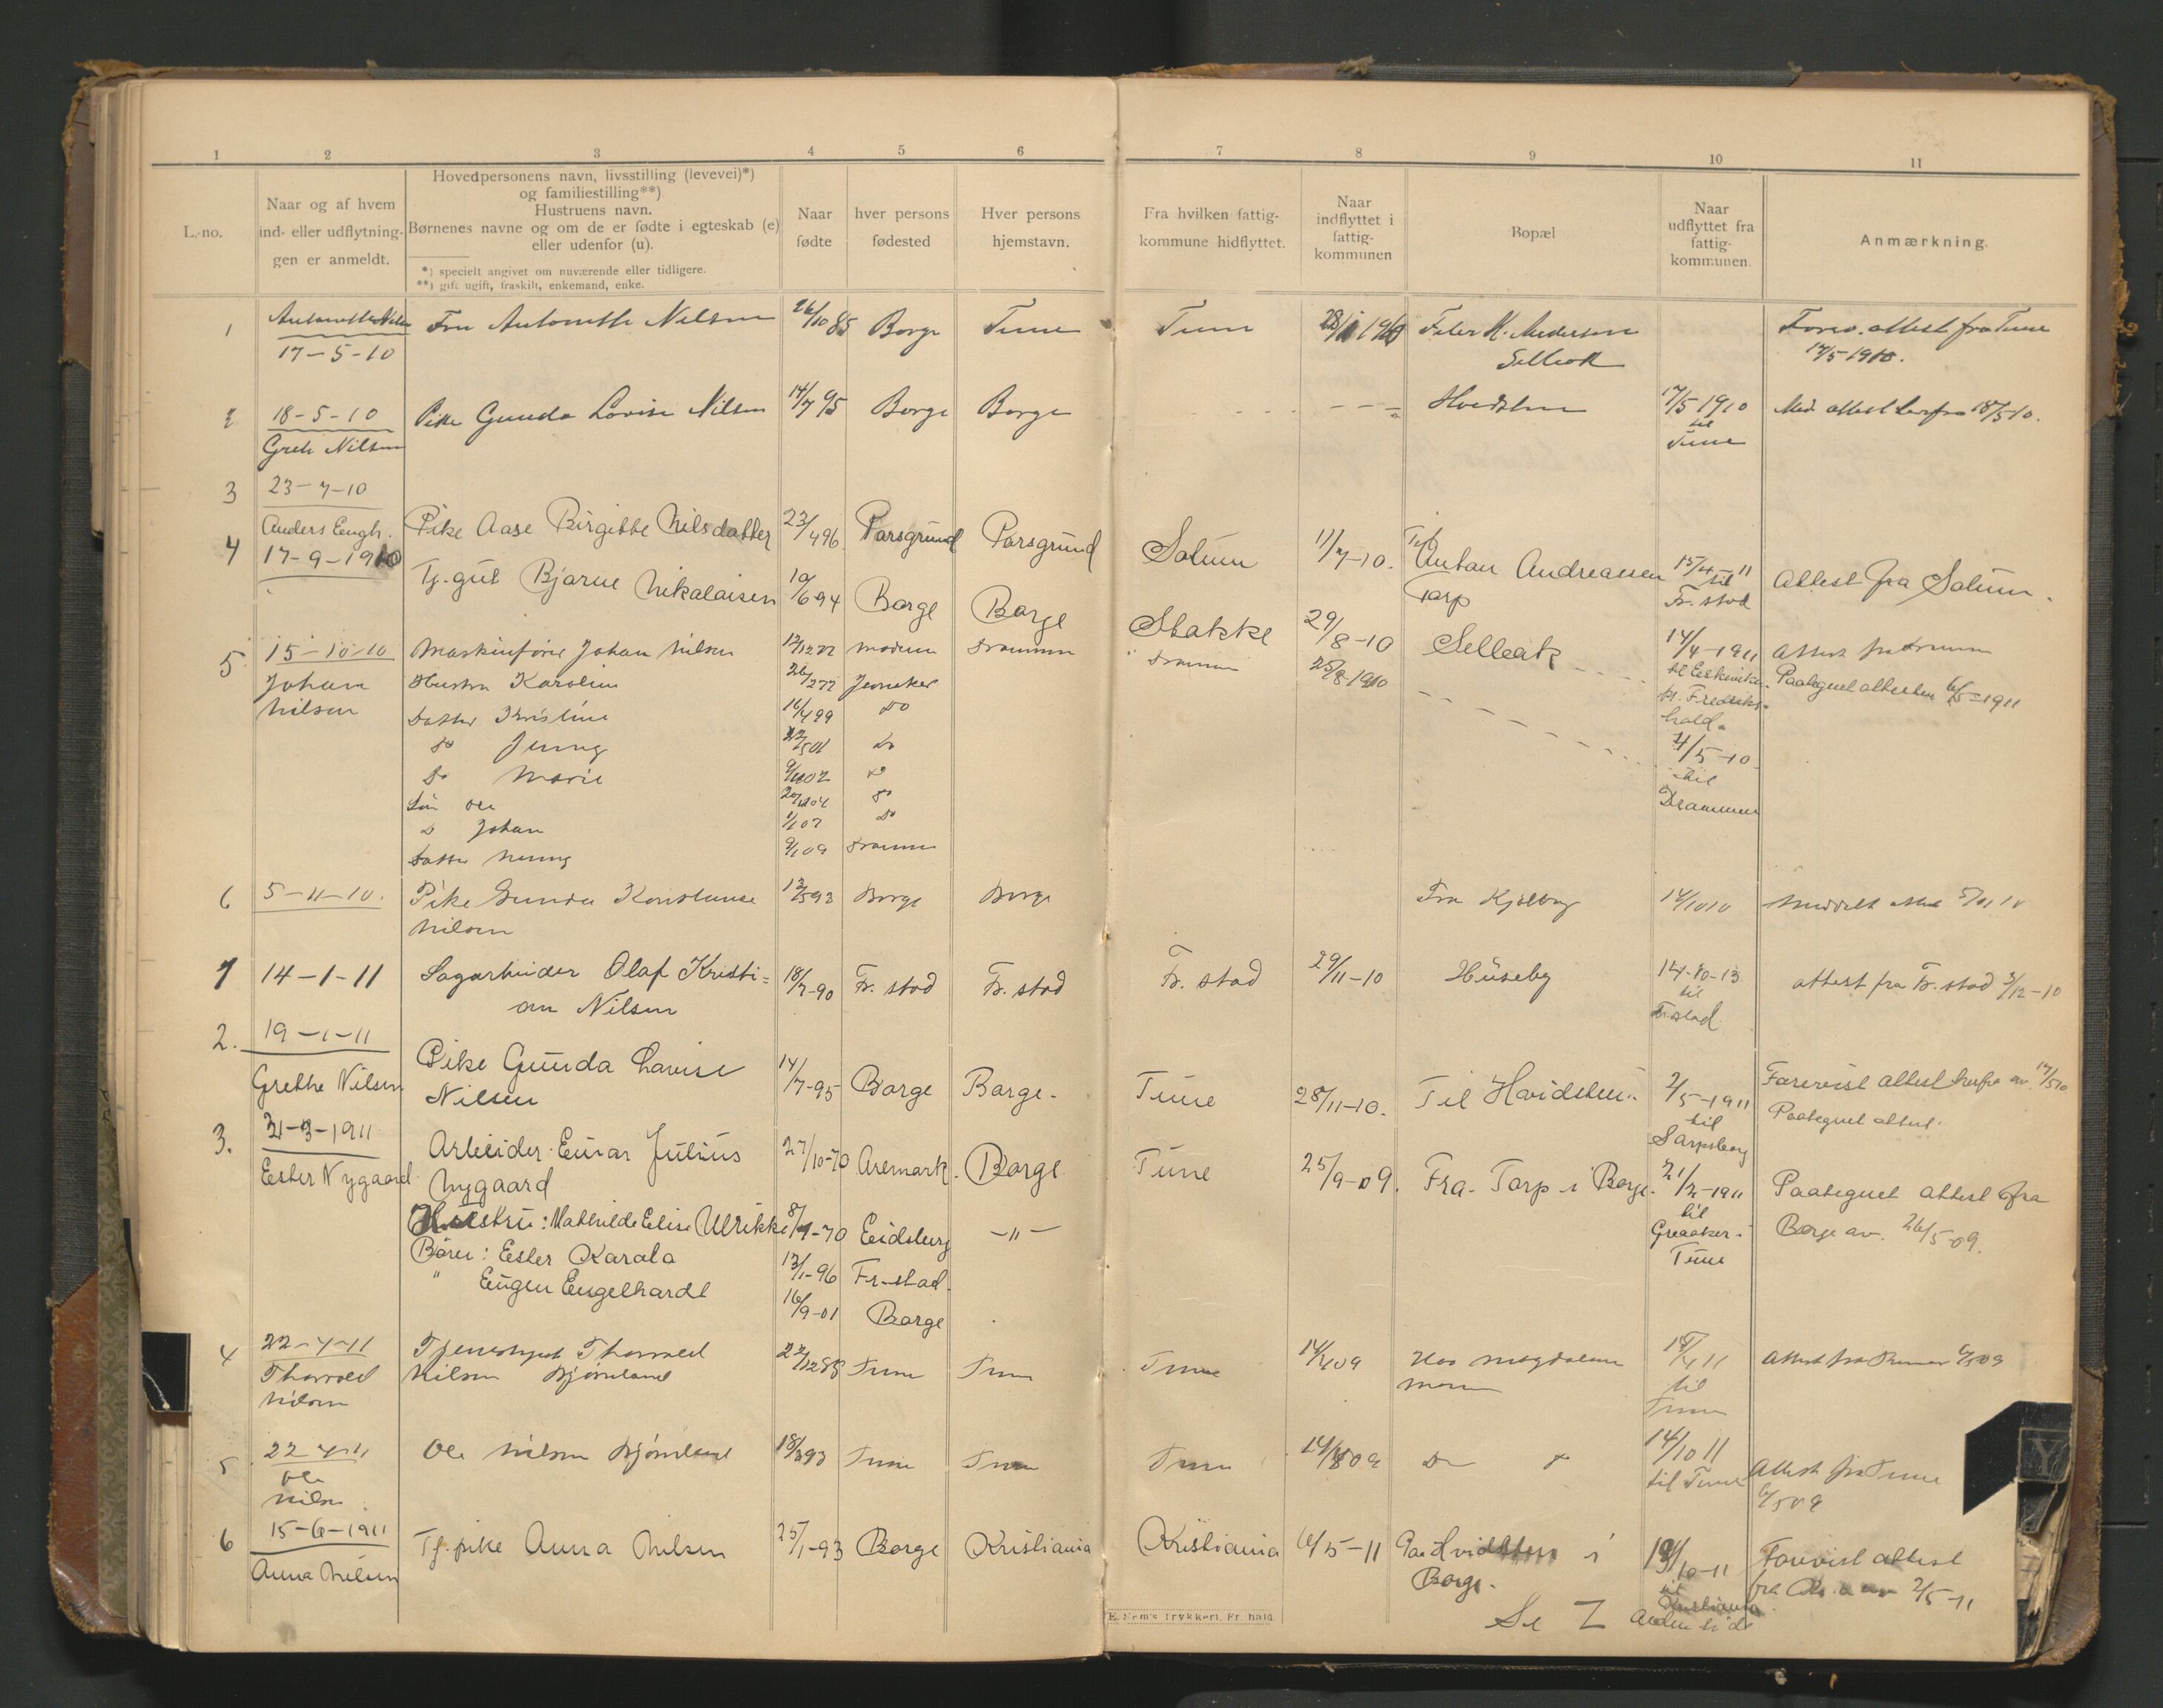 1 2 3 4 5 6 7 8 9 10 11
L.-no.
Naar og af hvem
ind- eller udflytnin-
gen er anmeldt.
Hovedpersonens navn, livsstilling (levevei)*)
og familiestilling**)
Hustruens navn.
Børnenes navne og om de er fødte i egteskab (e)
eller udenfor (u).
*) specielt angivet om nuværende eller tidligere.
**) gift ugift, fraskilt, enkemand, enke.
Naar
fødte
hver persons
fødested
Hver persons
hjemstavn.
Fra hvilken fattig-
kommune hidflyttet.
Naar
indflyttet i
fattig-
kommunen
Bopæl
Naar
udflyttet fra
fattig-
kommunen.
Anmærkning.
1 Antonette Nilsen Fru Antonette Nilsen 26/10 85 Borge Tune Tune 1910 Peter H. Andersen Forev. attest fra Tune
17-5-10 Selleok 17/5-1910.
2 18-5-10 Pike Gunda Lovise Nilsen 14/7 95 Borge Borge Hvidsten 17/5 1910 Med attest herfra 18/5 10.
Grete Nilsen til
Tune
3 23-7-10
Anders Engh. Pike Aase Birgitte Nilsdatter 23/4 96 Porsgrund Porsgrund Solum 11/7-10. Til Anton Andreassen 15/4-11 Attest fra Solum.
Torp til
Fr. stad
4 17-9-1910 Tj. gut Bjarne Nikolaisen 10/6 94 Borge Borge Stokke 29/8-10 Selleok 14/4-1911
5 15-10-10 Maskinfører Johan Nilsen 12/12 77 Modum Drammen Drammen 25/8-1910 Attest fra Drammen
Johan Hustru Karoline 26/2 77 Jevnaker til Eskeviken Paategnet attesten 6/5-1911
Nilsen Datter Kristine 16/4 99 Do pr. Fredriks-
hald.
Do Jenny Do 4/5-10
Do Marie Do til
Søn Ole Do Drammen
D Johan 1/1 07 Do
Datter Nenny 9/1 09 Drammen
6 5-11-10. Pike Gunda Konstanse 13/5 93 Borge Borge Fra Kjølberg 14/10 10 Meddelt attest 5/11 10
Nilsen
1 14-1-11 Sagarbeider Olaf Kristi= 18/7-90 Fr. stad Fr. stad Fr. stad 29/11-10 Huseby 14-10-13 attest fra Fr. stad 3/12-10
an Nilsen til
Fr.stad
2. 19-1-11
Grethe Nilsen Pike Gunda Lovise 14/7-95 Borge Borge. Tune 28/11-10. Til Hvidsten. 2/5-1911 Forevist attest herfra av 17/5 10
Nilsen til Paategnet attest.
Sarpsborg
3. 31-3-1911
Ester Nygaard Arbeider Einar Julius 27/10-70 Aremark. Borge Tune 25/9-09. Fra Torp i Borge. 21/2-1911 Paategnet attest fra
Nygaard til Borge av. 26/5-09.
Hustru: Mathilde Elise Ulrikke 8/1-70 Eidsberg -"- Greaaker i
Børn: Ester Karola 13/1-96 Fr.stad. Tune
" Eugen Engelhardt 16/9-01 Borge
4 22-4-11 Tjenestegut Thorvald 22/12 88 Tune Tune Tune 14/4 09 Hos Magdalene 14/4 11 Attest fra Tune av 6/5 09
Thorvald Nilsen Bjørneland til
Nilsen Tune
5 22-4-11 Ole Nilsen Bjørneland 18/3 93 Tune Tune Tune 14/4 09 Do 14/10 11
Ole til Tune Attest fra Tune
Nilsen 6/5 09
6 15-6-1911 Tj. pike Anna Nilsen 25/1-93 Borge Kristiania Kristiania 6/5-11 Paa Hvidsten i 19/10-11 Forevist attest
Anna Nilsen Borge. til fra Kr.a av 2/5-11
Kristiania
E. Sem's Trykkeri, Fr. hald.
Se Z Anden side